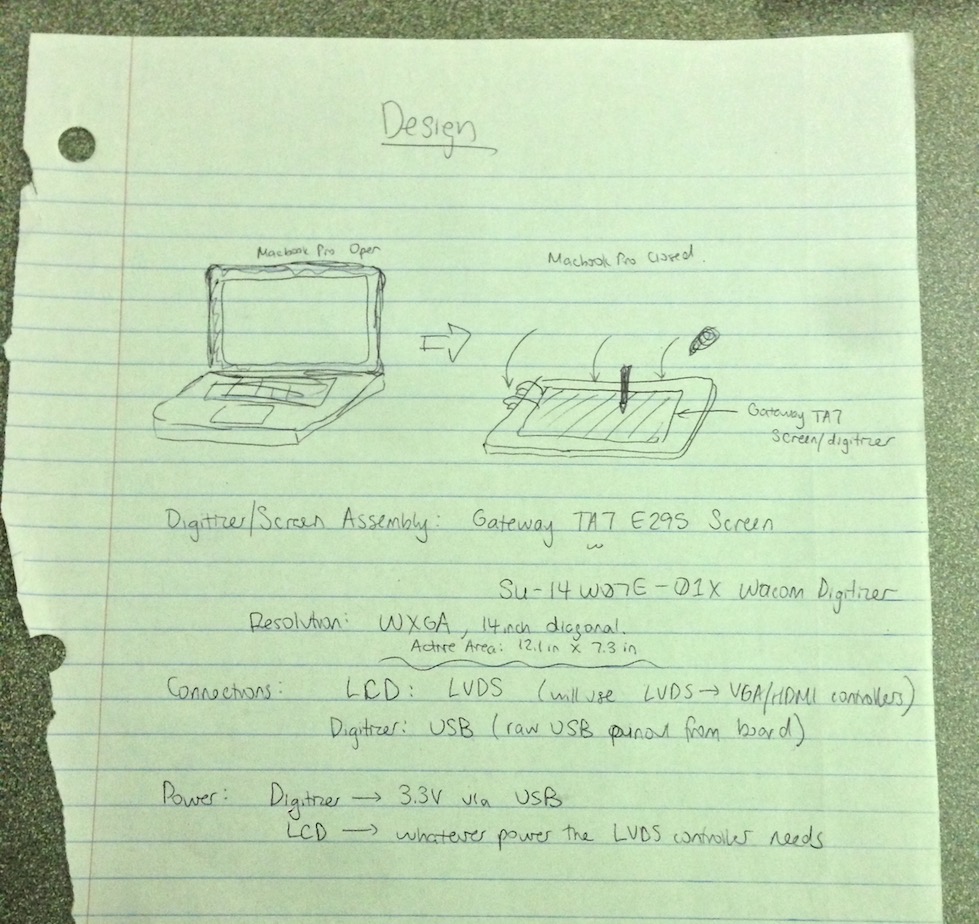 Design
Macbook Pro Open
Macbook Pro Closed.
Gateway TA7
Screen/digitizer
Digitizer/Screen Assembly: Gateway TA7 E295 Screen
SU-14W07E-01X Wacom Digitizer
Resolution: WXGA, 14 inch diagonal.
Active Area: 12.1 in x 7.3 in
Connections: LCD: LVDS (will use LVDS → VGA/HDMI controllers)
Digitizer: USB (raw USB pinout from board)
Power: Digitizer → 3.3V via USB
LCD → whatever power the LVDS controller needs